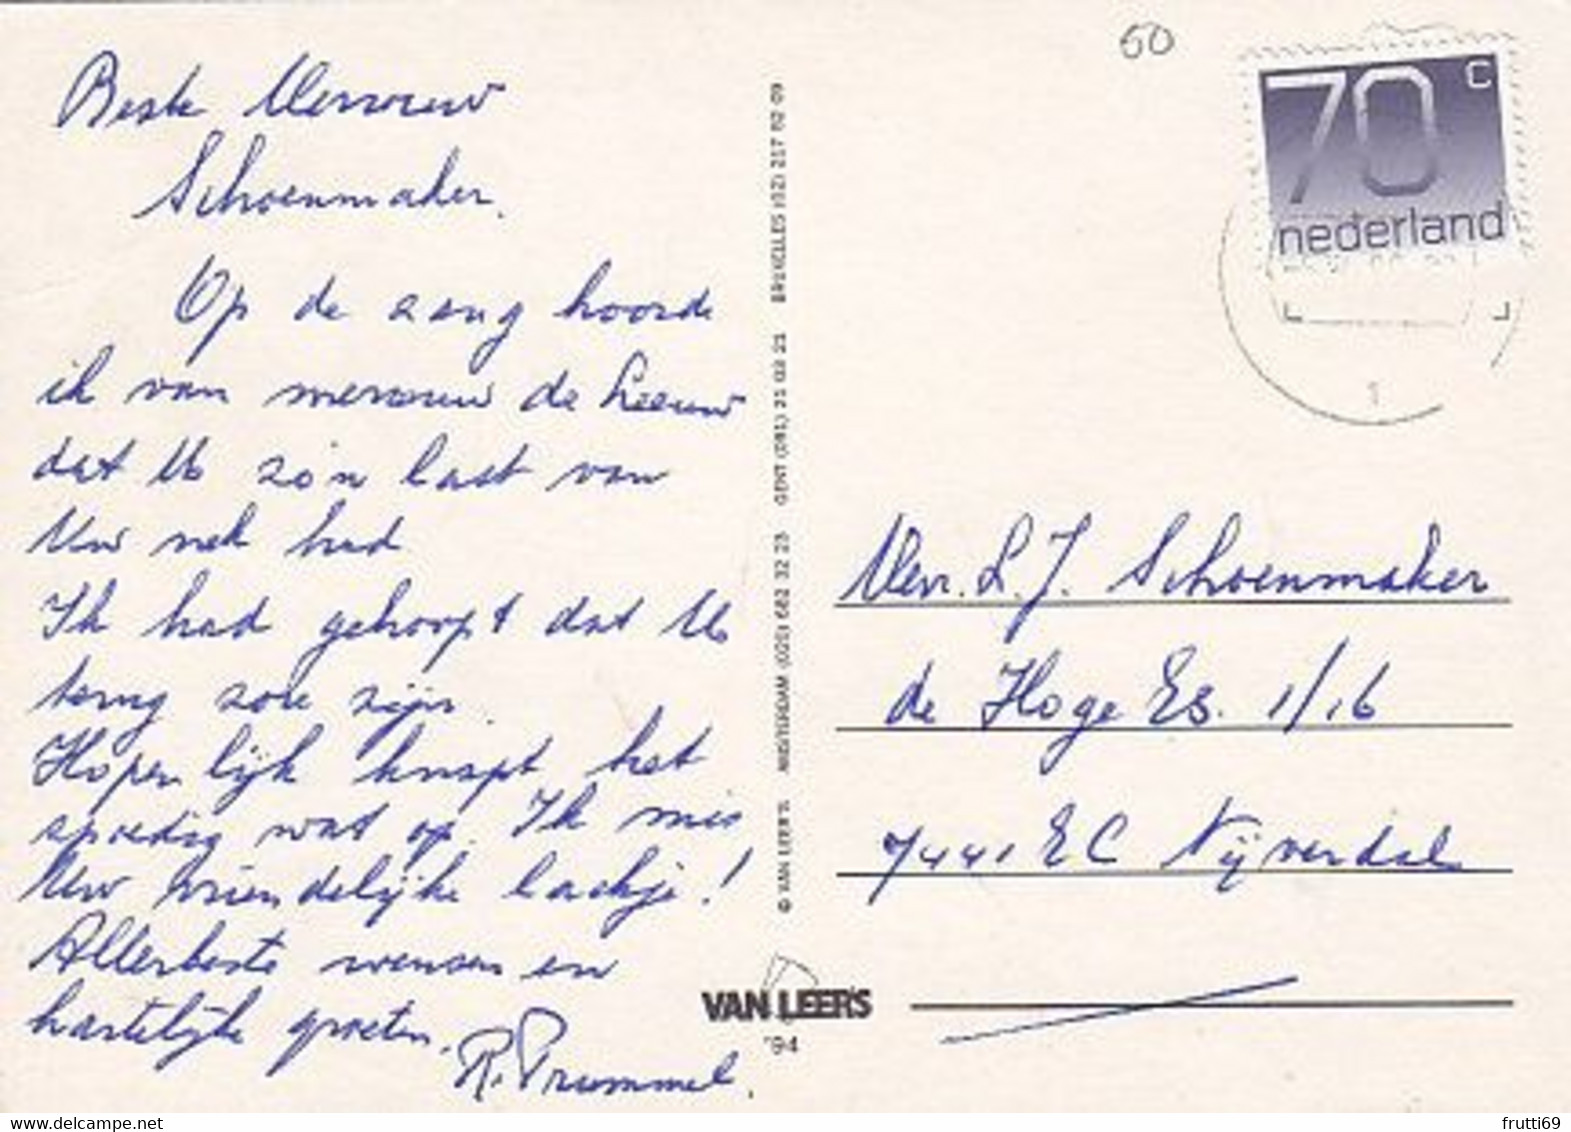 Beste Mevrouw
Schoenmaker.
Op de zang hoorde
ik van mevrouw de Leeuw
dat U zo'n last van
Uw nek had
Ik had gehoopt dat U
terug zou zijn.
Hopenlijk knapt het
spoedig wat op. Ik mis
Uw vriendelijke lachje!
Allerbeste wensen en
hartelijke groeten.
R. Prummel.
60
70 c
nederland
1
Mevr. L. J. Schoenmaker
de Hoge Es. 1/16
7441 EC Nijverdal
© VAN LEER'S AMSTERDAM (020) 682 32 23 GENT (091) 21 03 21 BRUXELLES (02) 217 82 09
VAN LEER'S
'94
frutti69